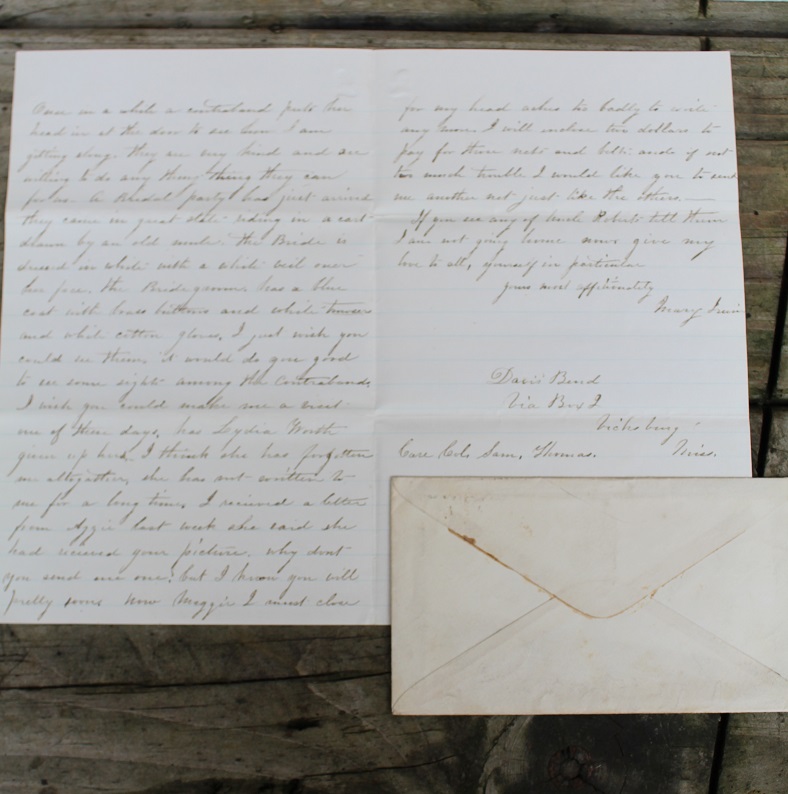 Once in a while a contraband puts her
head in at the door to see how I am
getting along. they are very kind and are
willing to do any thing they can
for us. A Bridal party has just arrived
they came in great state riding in a cart
drawn by an old mule. the Bride is
dressed in white with a white veil over
her face. the Bridegroom has a blue
coat with brass buttons and white trousers
and white cotton gloves, I just wish you
could see them, it would do you good
to see some sights among the Contrabands,
I wish you could make me a visit
one of these days, has Lydia Worth
given up her I think she has forgotten
me altogather, she has not written to
me for a long time, I recieved a letter
from Aggie last week she said she
had recieved your picture. why dont
you send me one? but I know you will
pretty soon. Now Maggie I must close
for my head aches too badly to write
any more I will inclose two dollars to
pay for those nets and belts and if not
too much trouble I would like you to send
me another net just like the others. —
If you see any of Uncle Roberts tell them
I am not going home now give my
love to all, yourself in particular
yours most
Mary
Davis Bend
Via Box 2
Vicksburg
Care Col. Sam. Thomas. Miss.